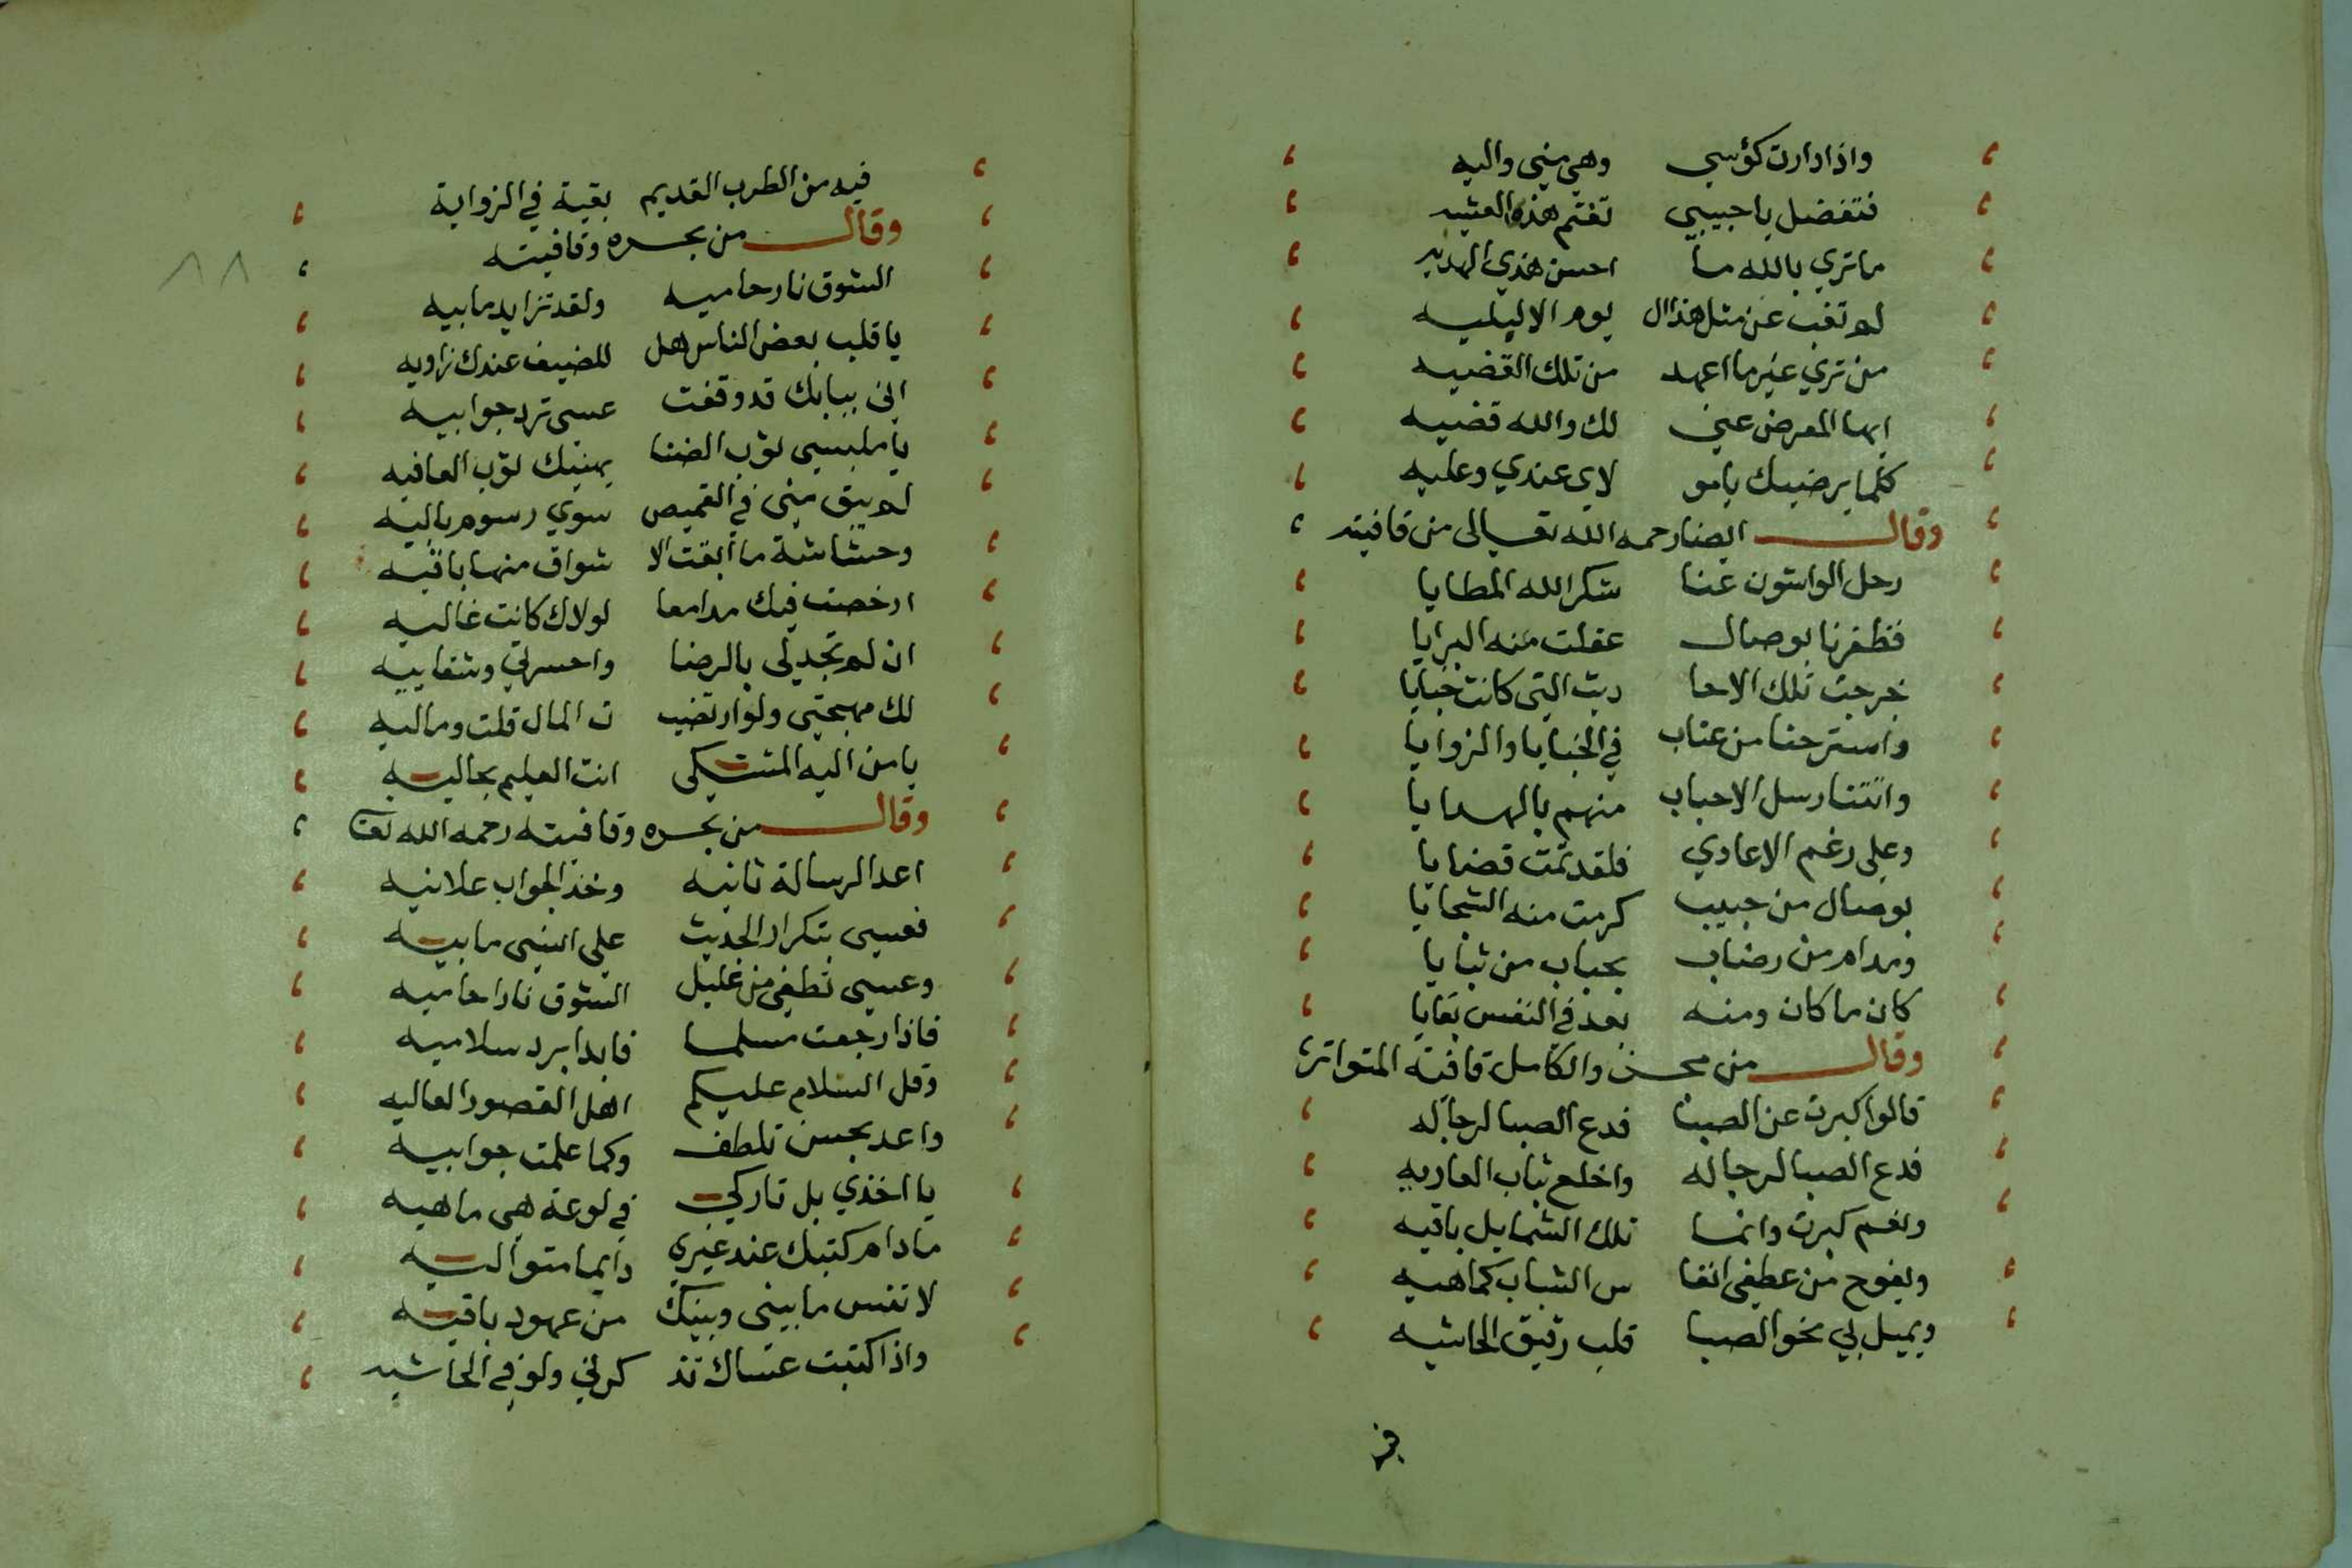 واذا دارت كؤسي وهي مني واليه
فتفضل يا حبيبي تغتنم هذه العشيه
ما تري بالله ما احسن هذي الهديه
لم تغب عن مثل هذا ال يوم الا لبليه
من تري غير ما اعهد من تلك القضيه
ايها المعرض عني لك والله قضيه
كلما يرضيك يا مو لاي عندي وعليه
وقال ايضا رحمه الله تعالى من قافيته
رحل الواشون عنا شكر الله المطايا
فظفرنا بوصال غفلت منه البرايا
خرجت تلك الاحا ديث التي كانت خبايا
واسترحنا من عتاب في الخبايا والزوايا
واتتنا رسل الاحباب منهم بالهدايا
وعلى رغم الاعادي فلقد تمت قضايا
بوصال من حبيب كرمت منه السجايا
ومدام من رضاب بحباب من ثنايا
كان ما كان ومنه بعد في النفس بقايا
وقال من والكامل قافية المتواتر
قالوا كبرت عن الصبا فدع الصبا لرجاله
فدع الصبا لرجاله واخلع ثياب العاريه
ونعم كبرت وانما تلك الشمايل باقيه
ويفوح من عطفي انفا س الشباب كما هيه
ويميل بي نحو الصبا قلب رقيق الحاشيه
فيه
فيه من الطرب القديم بقية في الزواية
وقال من بحره وقافيته
الشوق نار حاميه ولقد تزايد ما بيه
يا قلب بعض الناس هل للضيف عندك زاويه
اني ببابك قد وقفت عسى ترد جوابيه
يا ملبسي ثوب الضنا يهنيك ثوب العافيه
لم يبق مني في القميص سوي رسوم باليه
وحشاشة ما ابقت الا شواق منها باقيه
ارخصت فيك مدامعا لولاك كانت غاليه
ان لم تجد لي بالرضا واحسرتي وشقاييه
لك مهجتي ولو ارتضيـ ت المال قلت وماليه
يا من اليه المشتكي انت العليم بحاليه
وقال من بحره وقافيته رحمه الله تعا
اعد الرسالة ثانيه وخذ الجواب علانيه
فعسى بتكرار الحديث علي انسى ما بيه
وعسى تطفي من غليل الشوق نارا حاميه
فاذا رجعت مسلما فابدا برد سلاميه
وقل السلام عليكم اهل القصور العاليه
واعد بحسن تلطف وكما علمت جوابيه
يا اخذي بل تاركي في لوعة هي ما هيه
ما دام كتبك عند غيري دايما متواليه
لا تنس ما بيني وبينك من عهود باقيه
واذا كتبت عساك تذ كرني ولو في الحاشيه
٨٨